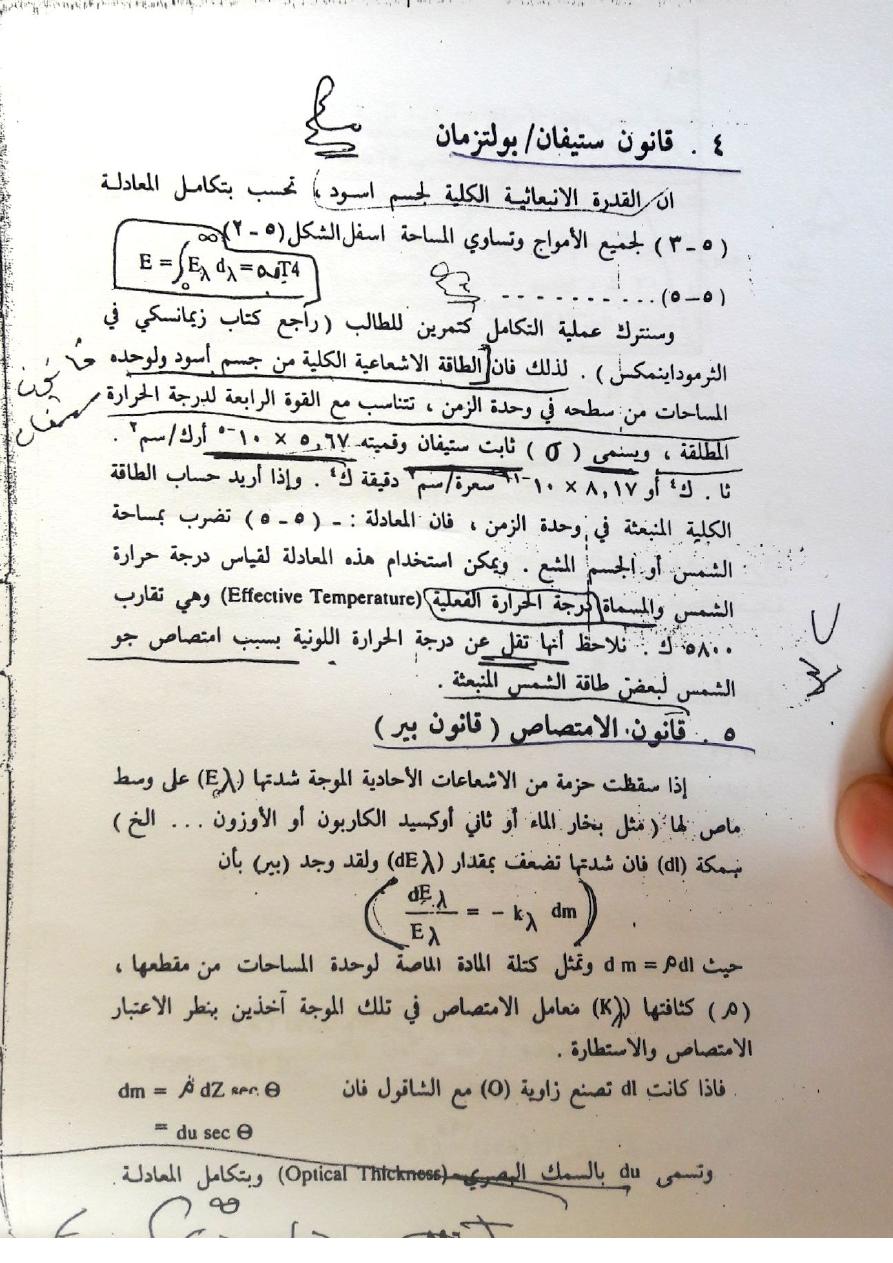 ٤ . قانون ستيفان/ بولتزمان
ان القدرة الانبعاثية الكلية لجسم اسود ، تحسب بتكامل المعادلة
(٥-٣) لجميع الأمواج وتساوي المساحة اسفل الشكل (٥-٢)
E = ∫₀^∞ Eλ dλ = σT4
(٥-٥) . . . . . . . . . . .
وسنترك عملية التكامل كتمرين للطالب ( راجع كتاب زيمانسكي في
الثرموداينمكس ) . لذلك فان الطاقة الاشعاعية الكلية من جسم أسود ولوحده
المساحات من سطحه في وحدة الزمن ، تتناسب مع القوة الرابعة لدرجة الحرارة
قانون
ستيفان
المطلقة ، ويسمى ( σ ) ثابت ستيفان وقميته ٥,٦٧ × ١٠⁻⁵ أرك/سم² .
ثا . ك⁴ أو ٨,١٧ × ١٠⁻¹¹ سعرة/سم² دقيقة ك⁴ . وإذا أريد حساب الطاقة
الكلية المنبعثة في وحدة الزمن ، فان المعادلة : ـ (٥ - ٥) تضرب بمساحة
الشمس أو الجسم المشع . ويمكن استخدام هذه المعادلة لقياس درجة حرارة
الشمس والمسماة درجة الحرارة الفعلية (Effective Temperature) وهي تقارب
٥٨٠٠ ك . نلاحظ أنها تقل عن درجة الحرارة اللونية بسبب امتصاص جو
الشمس لبعض طاقة الشمس المنبعثة .
٥ . قانون الامتصاص ( قانون بير )
إذا سقطت حزمة من الاشعاعات الأحادية الموجة شدتها (Eλ) على وسط
ماص لها ( مثل بخار الماء أو ثاني أوكسيد الكاربون أو الأوزون ... الخ )
سمكة (dl) فان شدتها تضعف بمقدار (dEλ) ولقد وجد (بير) بأن
dEλ / Eλ = - kλ dm
حيث dm = ρdl وتمثل كتلة المادة الماصة لوحدة المساحات من مقطعها ،
(ρ) كثافتها (Kλ) معامل الامتصاص في تلك الموجة آخذين بنظر الاعتبار
الامتصاص والاستطارة .
فاذا كانت dl تصنع زاوية (O) مع الشاقول فان dm = ρ dZ sec Θ
= du sec Θ
وتسمى du بالسمك البصري (Optical Thickness) وبتكامل المعادلة